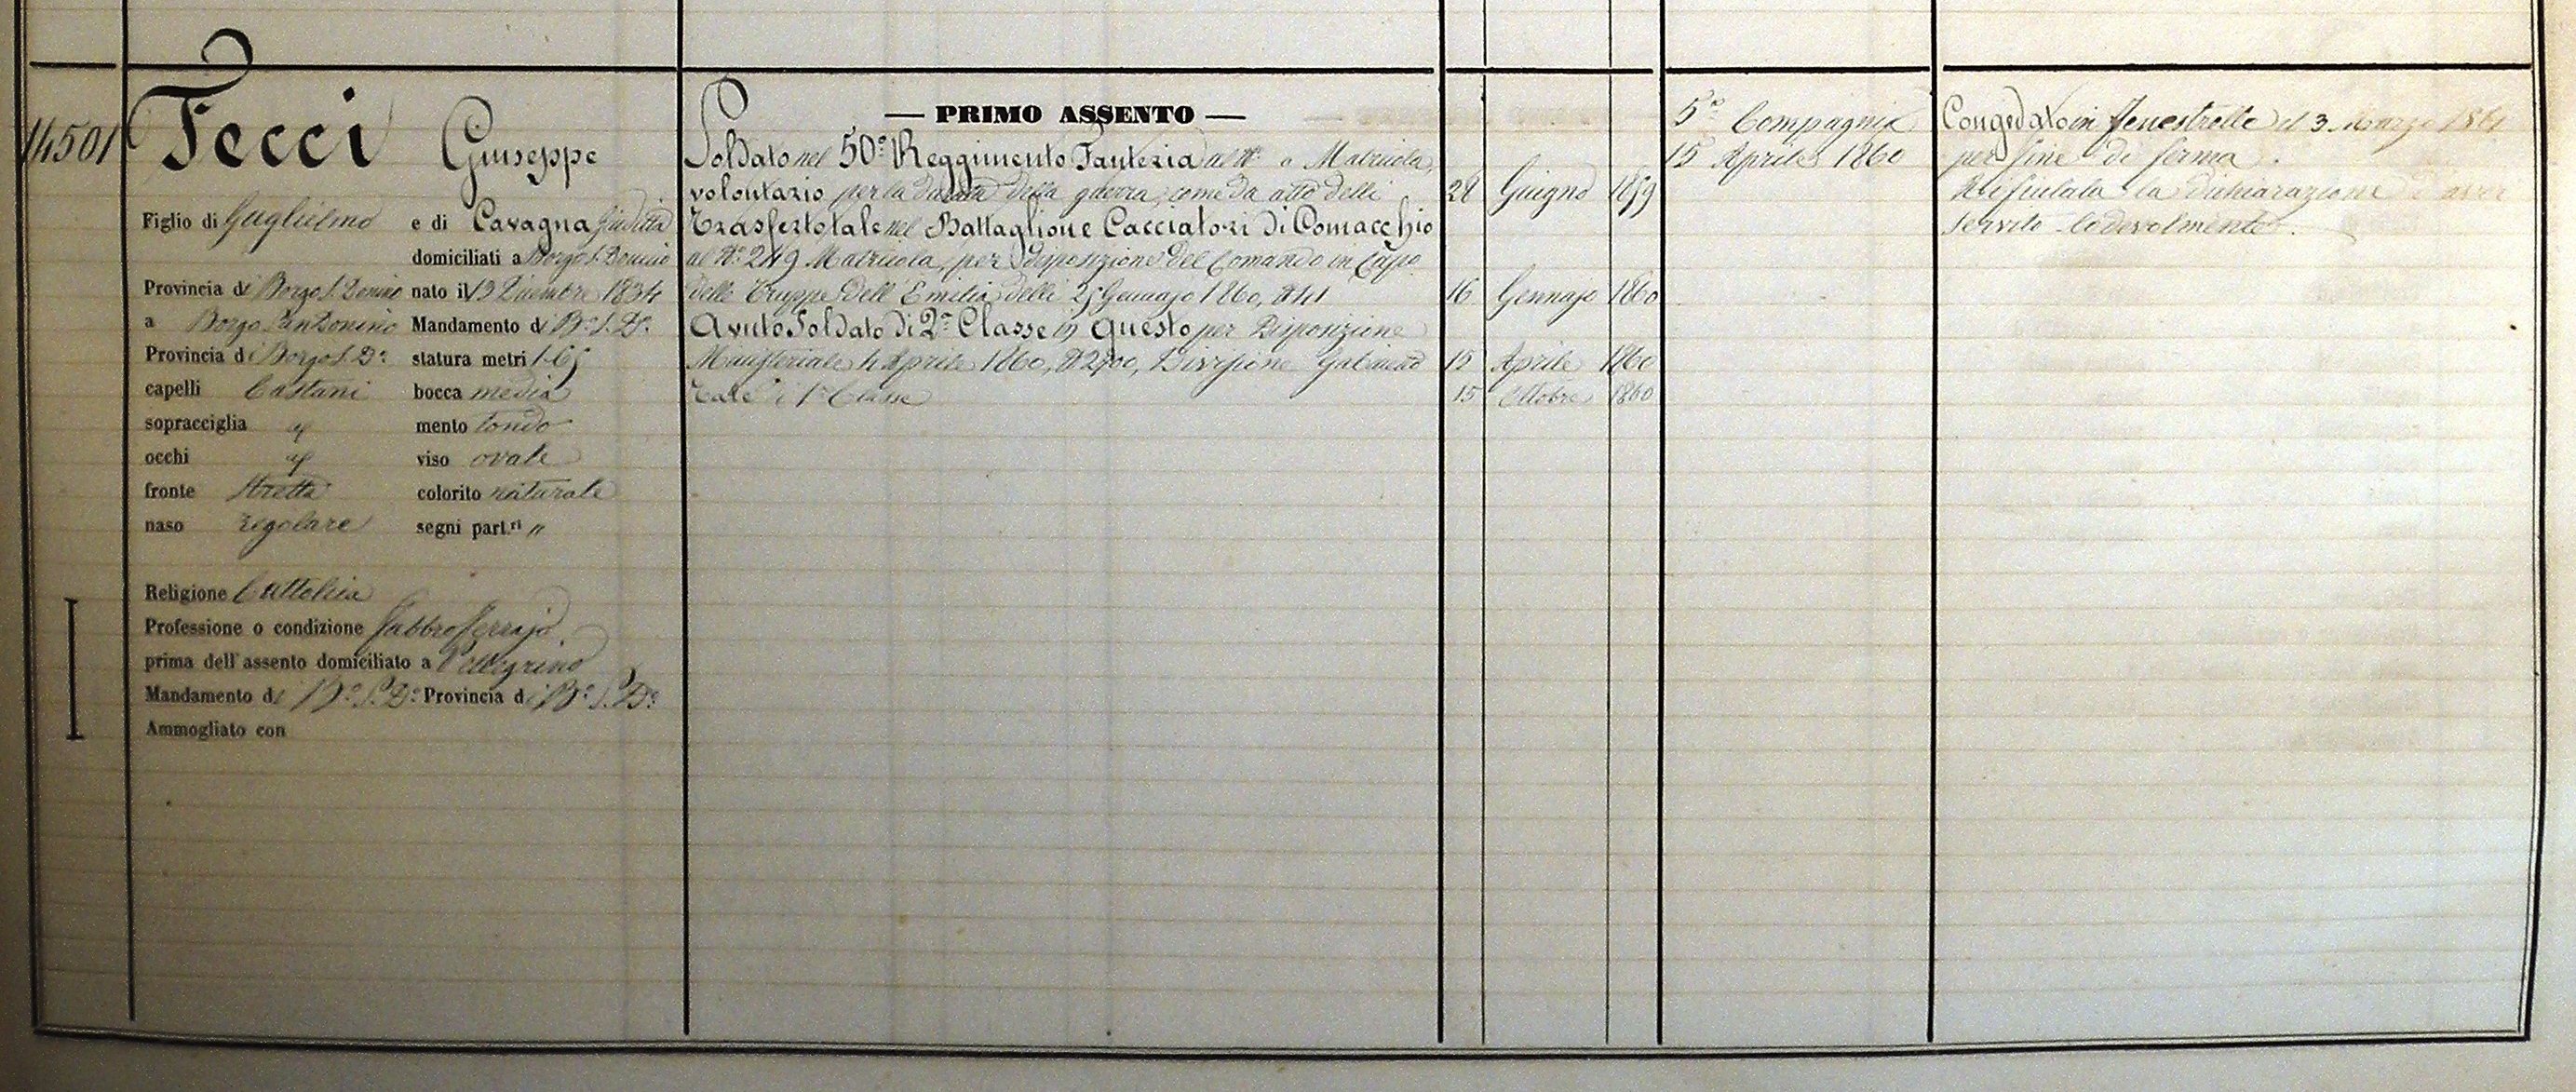 14501
Fecci Giuseppe
Figlio di Guglielmo e di Cavagna Giuditta
domiciliati a Borgo S. Donino
Provincia di Borgo S. Donino nato il 13 Dicembre 1834
a Borgo San Donino Mandamento di B.o S. D.o
Provincia di Borgo S. D.o statura metri 1.65
capelli Castani bocca media
sopracciglia mento tondo
occhi viso ovale
fronte stretta colorito naturale
naso regolare segni part.ri "
Religione Cattolica
Professione o condizione Fabbro ferrajo
prima dell'assento domiciliato a Pellegrino
Mandamento di B.o S. D.o Provincia di B.o S. D.o
Ammogliato con
— PRIMO ASSENTO —
Soldato nel 50.o Reggimento Fanteria al N.o Matricola,
volontario per la durata della guerra, come da atto delli 28 Giugno 1859
Trasferto tale nel Battaglione Cacciatori di Comacchio
al N.o 2419 Matricola, per disposizione del Comando in Capo
delle Truppe dell'Emilia delli 25 Gennajo 1860, N 41 16 Gennajo 1860
Avuto Soldato di 2.a Classe in questo per Disposizione
Ministeriale 4 Aprile 1860, N 2400, Divisione Gabinetto 15 Aprile 1860
Tale di 1.a Classe 15 Ottobre 1860
5.a Compagnia
15 Aprile 1860
Congedato in Fenestrelle il 3 Marzo 1861
per fine di ferma.
Rifiutata la dichiarazione d'aver
servito lodevolmente.